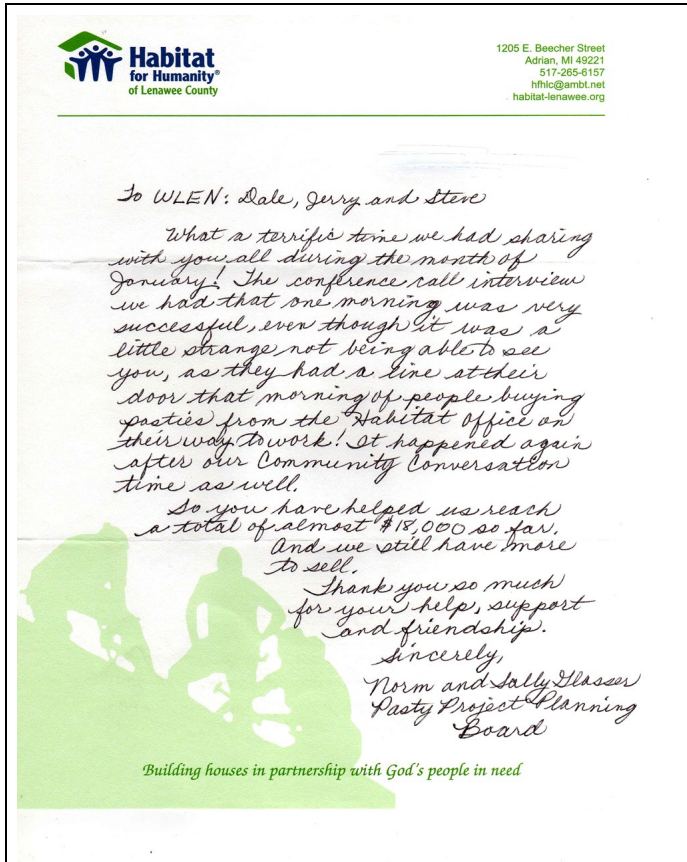 Habitat
for Humanity®
of Lenawee County
1205 E. Beecher Street
Adrian, MI 49221
517-265-6157
hfhlc@ambt.net
habitat-lenawee.org
To WLEN: Dale, Jerry and Steve
What a terrific time we had sharing
with you all during the month of
January! The conference call interview
we had that one morning was very
successful, even though it was a
little strange not being able to see
you, as they had a line at their
door that morning of people buying
pasties from the Habitat office on
their way to work! It happened again
after our Community Conversation
time as well.
So you have helped us reach
a total of almost $18,000 so far.
And we still have more
to sell.
Thank you so much
for your help, support
and friendship.
Sincerely,
Norm and Sally Glasser
Pasty Project Planning
Board
Building houses in partnership with God's people in need